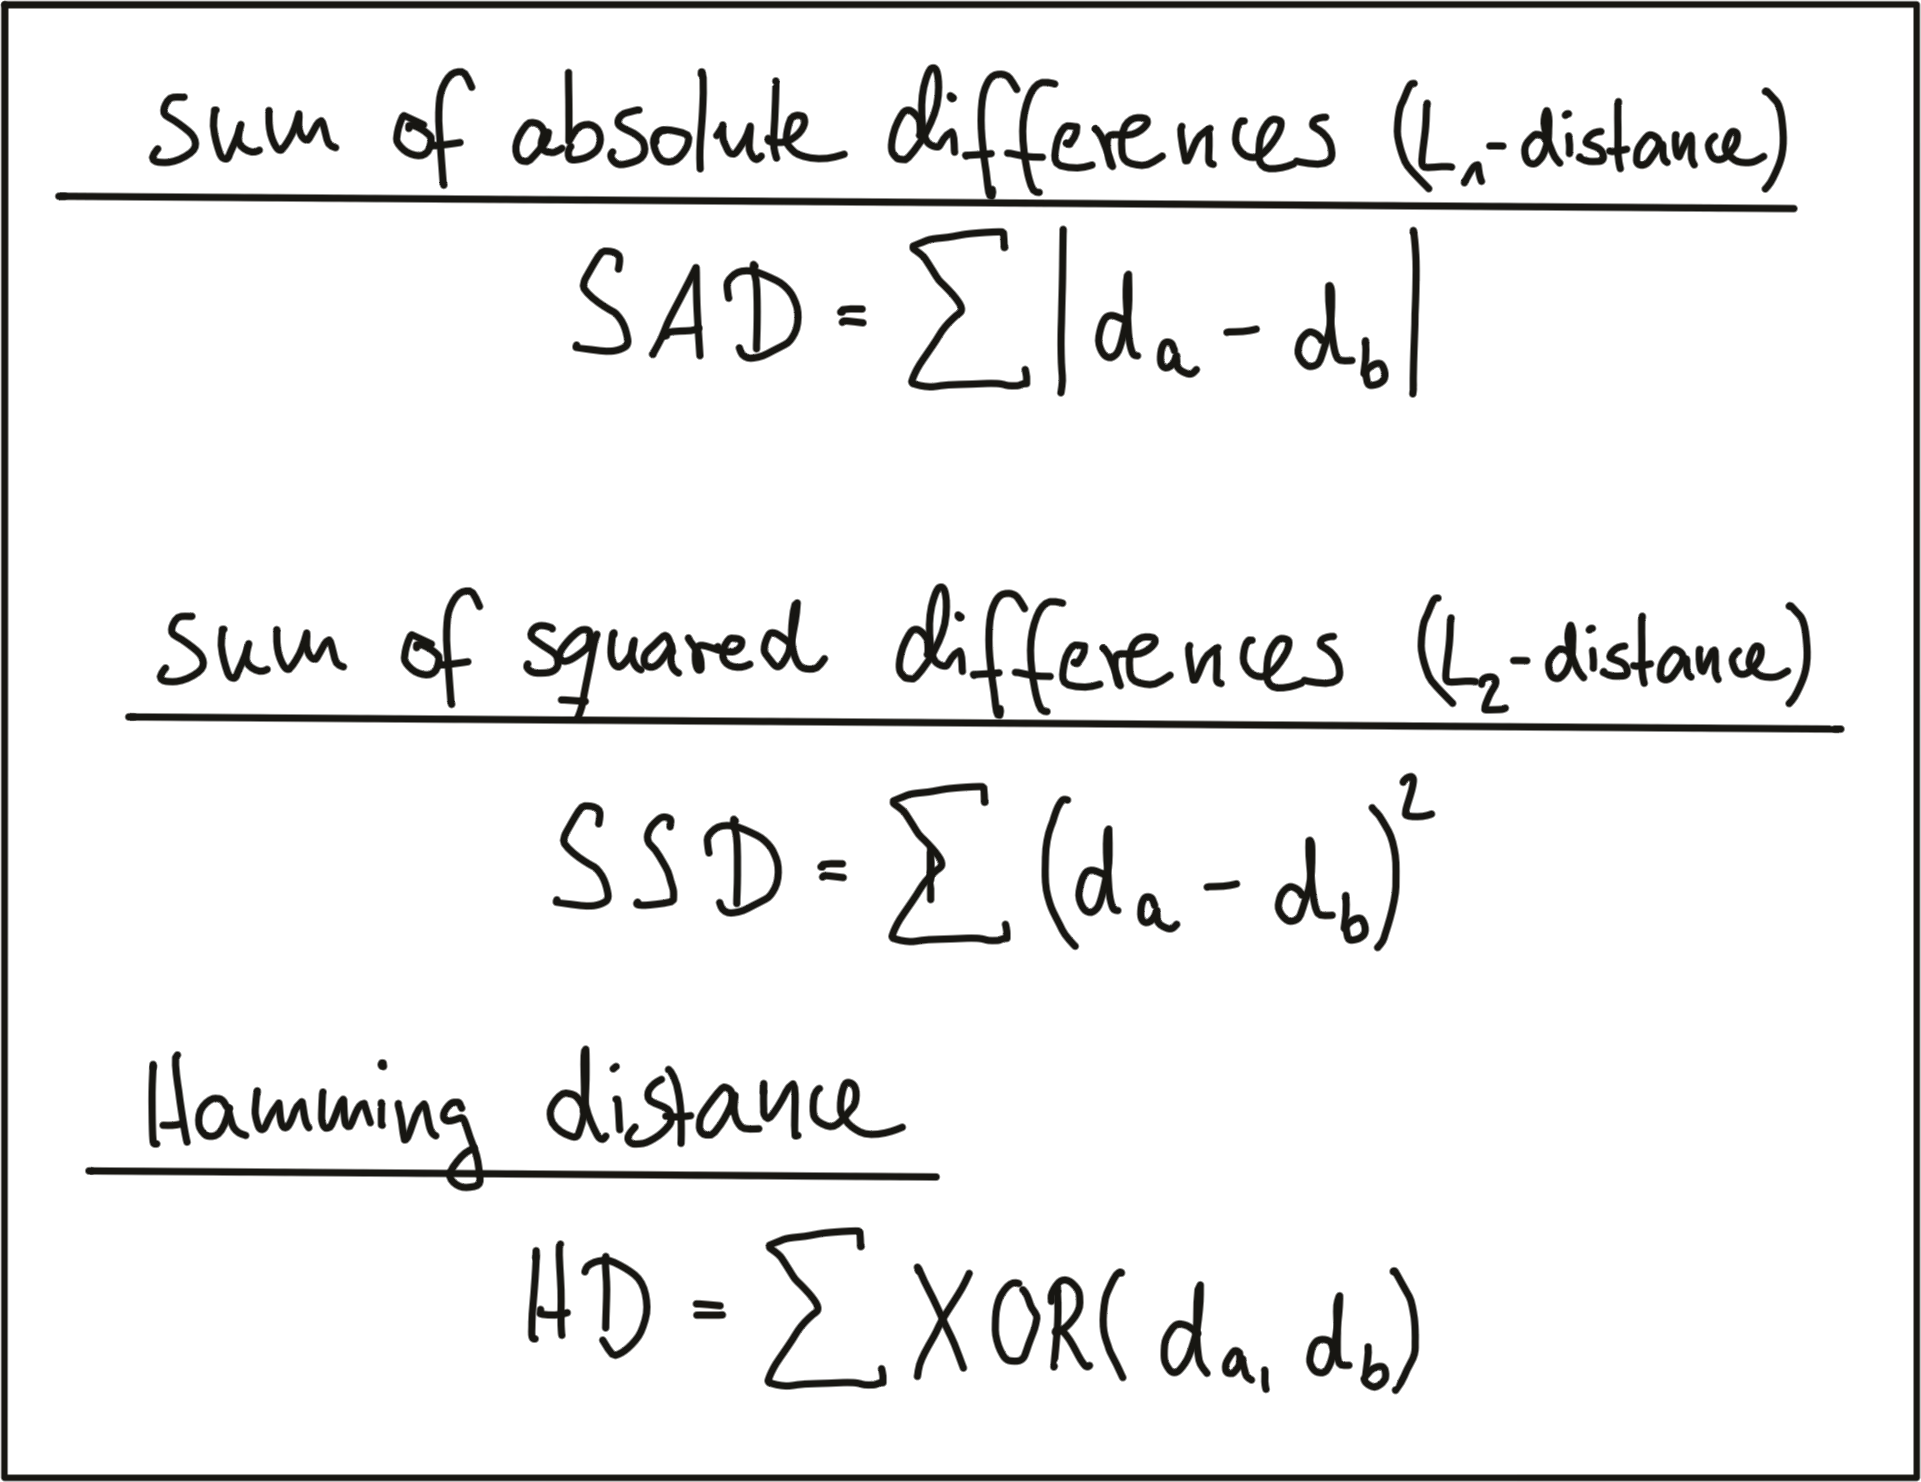 Sum of absolute differences (L₁-distance)
SAD = ∑|dₐ - d_b|
Sum of squared differences (L₂-distance)
SSD = ∑(dₐ - d_b)²
Hamming distance
HD = ∑XOR(dₐ, d_b)